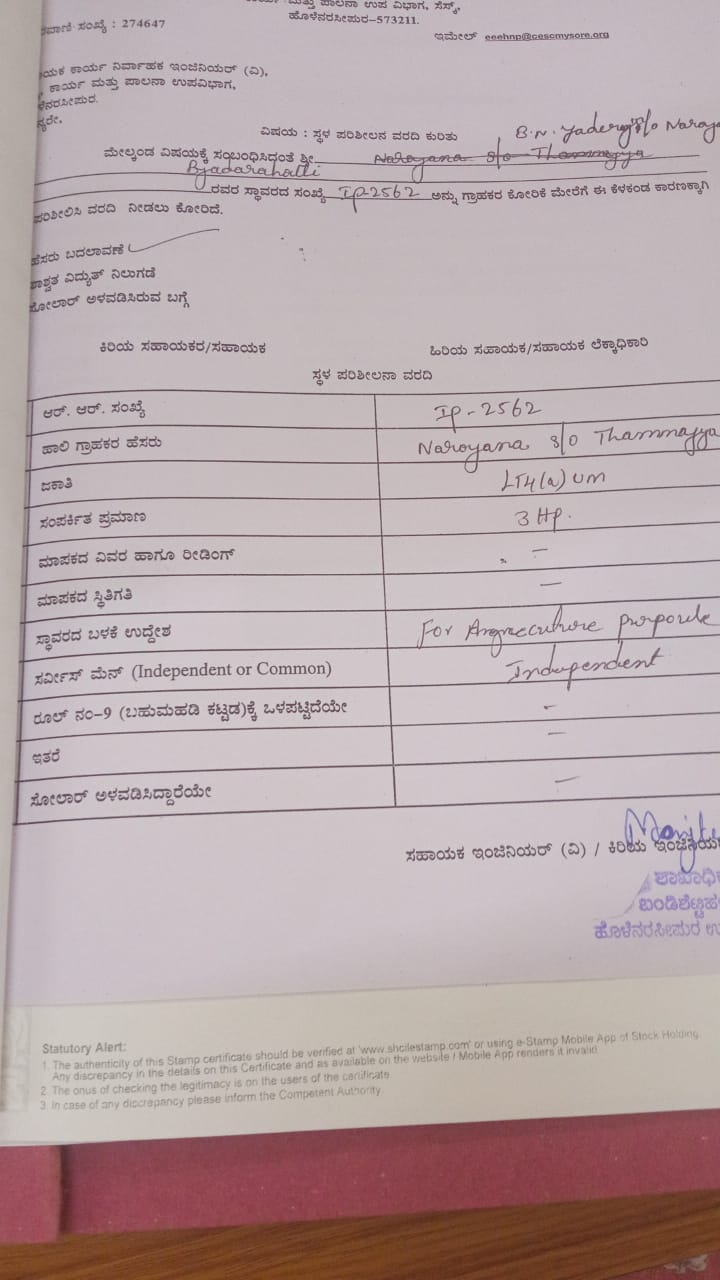 ಮತ್ತು ಪಾಲನಾ ಉಪ ವಿಭಾಗ, ಸೆಸ್ಕ್,
ಸಂಖ್ಯೆ : 274647
ಹೊಳೆನರಸೀಪುರ-573211.
ಇಮೇಲ್ eeehnp@cescmysore.org
ಕಾರ್ಯ ನಿರ್ವಾಹಕ ಇಂಜಿನಿಯರ್ (ವಿ),
ಕಾರ್ಯ ಮತ್ತು ಪಾಲನಾ ಉಪವಿಭಾಗ,
ವಿಷಯ : ಸ್ಥಳ ಪರಿಶೀಲನ ವರದಿ ಕುರಿತು
B.N. s/o Naraya
ಮೇಲ್ಕಂಡ ವಿಷಯಕ್ಕೆ ಸಂಬಂಧಿಸಿದಂತೆ ಶ್ರೀ. Narayana s/o Thammayya
Byadarahalli
ರವರ ಸ್ಥಾವರದ ಸಂಖ್ಯೆ IP2562 ಅನ್ನು ಗ್ರಾಹಕರ ಕೋರಿಕೆ ಮೇರೆಗೆ ಈ ಕೆಳಕಂಡ ಕಾರಣಕ್ಕಾಗಿ
ಪರಿಶೀಲಿಸಿ ವರದಿ ನೀಡಲು ಕೋರಿದೆ.
ಹೆಸರು ಬದಲಾವಣೆ
ಶಾಶ್ವತ ವಿದ್ಯುತ್ ನಿಲುಗಡೆ
ಸೋಲಾರ್ ಅಳವಡಿಸಿರುವ ಬಗ್ಗೆ
ಕಿರಿಯ ಸಹಾಯಕರ/ಸಹಾಯಕ
ಹಿರಿಯ ಸಹಾಯಕ/ಸಹಾಯಕ ಲೆಕ್ಕಾಧಿಕಾರಿ
ಸ್ಥಳ ಪರಿಶೀಲನಾ ವರದಿ
ಆರ್. ಆರ್. ಸಂಖ್ಯೆ IP-2562
ಹಾಲಿ ಗ್ರಾಹಕರ ಹೆಸರು Naroyana s/o Thammayya
ಜಕಾತಿ LT4(a) um
ಸಂಪರ್ಕಿತ ಪ್ರಮಾಣ 3 HP.
ಮಾಪಕದ ವಿವರ ಹಾಗೂ ರೀಡಿಂಗ್ -
ಮಾಪಕದ ಸ್ಥಿತಿಗತಿ -
ಸ್ಥಾವರದ ಬಳಕೆ ಉದ್ದೇಶ For
ಸರ್ವೀಸ್ ಮೆನ್ (Independent or Common) Independent
ರೂಲ್ ನಂ-9 (ಬಹುಮಹಡಿ ಕಟ್ಟಡ)ಕ್ಕೆ ಒಳಪಟ್ಟಿದೆಯೇ -
ಇತರೆ -
ಸೋಲಾರ್ ಅಳವಡಿಸಿದ್ದಾರೆಯೇ -
ಸಹಾಯಕ ಇಂಜಿನಿಯರ್ (ವಿ) / ಕಿರಿಯ
ಶಾಖಾಧಿ
ಬಂಡಿಶೆಟ್ಟಿಹ
ಹೊಳೆನರಸೀಪುರ ಉ
Statutory Alert:
1. The authenticity of this Stamp certificate should be verified at 'www.shcilestamp.com' or using e-Stamp Mobile App of Stock Holding.
Any discrepancy in the details on this Certificate and as available on the website / Mobile App renders it invalid.
2. The onus of checking the legitimacy is on the users of the certificate.
3. In case of any discrepancy please inform the Competent Authority.